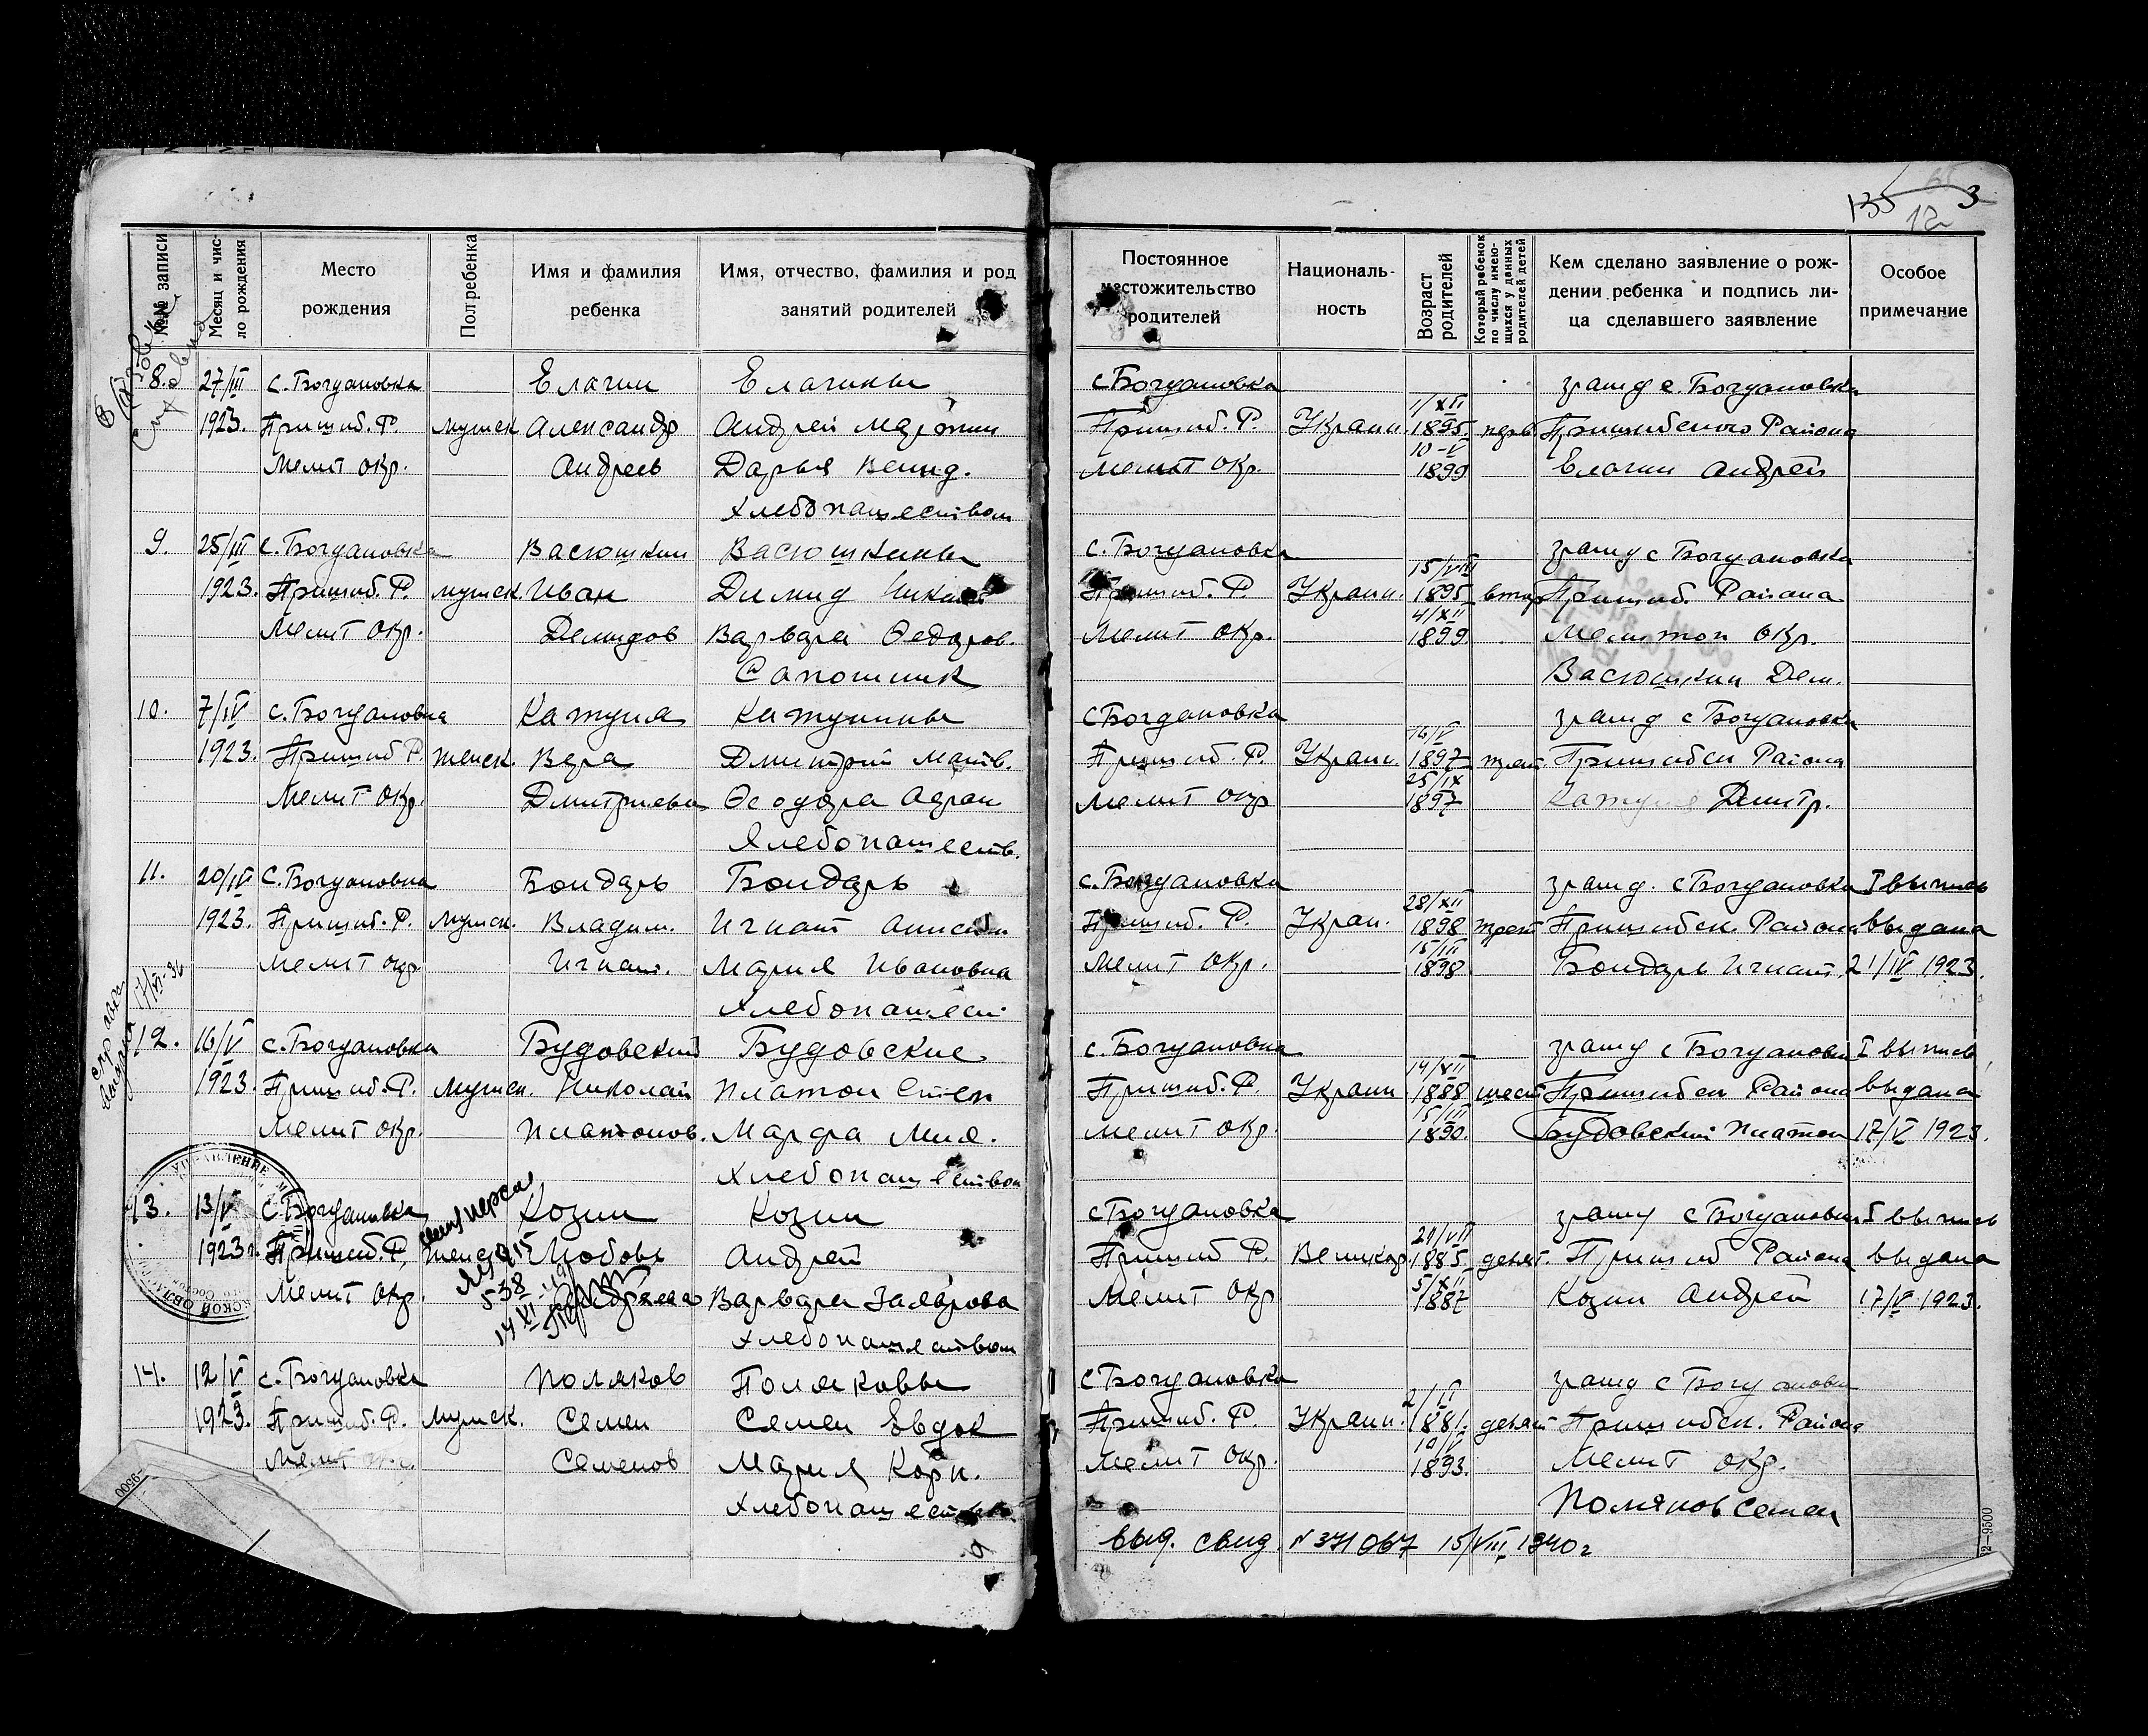 135 3
12
№№ записи
Месяц и чис-
ло рождения
Место
рождения
Пол ребенка
Имя и фамилия
ребенка
Имя, отчество, фамилия и род
занятий родителей
Постоянное
местожительство
родителей
Националь-
ность
Возраст
родителей
Который ребенок
по числу имею-
щихся у данных
родителей детей
Кем сделано заявление о рож-
дении ребенка и подпись ли-
ца сделавшего заявление
Особое
примечание
8. 27/III с. Богдановка Елагин Елагины с Богдановка гражд с. Богдановка
1923. Пришиб. Р. мужск Александр Андрей Мартин Пришиб. Р. Украин. 1/XII 1895 перв Пришибского Района
Мелит окр. Андреев Дарья Мелит окр. 10-V 1899 Елагин Андрей
Хлебопашеством
9. 25/III с. Богдановка Васюшкин Васюшкины с. Богдановка гражд с Богдановка
1923. Пришиб. Р. мужск. Иван Димид Пришиб. Р. Украин. 15/VIII 1895 втор Пришиб. Района
Мелит окр. Демидов Варвара Федоров. Мелит окр. 4/XII 1899 Мелитоп окр.
Сапошник Васюшкин Дем.
10. 7/IV с. Богдановка Катуня Катунины с Богдановка гражд с Богдановка
1923. Пришиб Р. женск. Вера Дмитрий Матв. Пришиб. Р. Украин. 16/V 1897 трет. Пришибск Района
Мелит окр. Дмитриевна Феодора Адран Мелит окр 25/IX 1897 Катуня Дмитр.
Хлебопашеств.
11. 20/IV с. Богдановка Бондарь Бондарь с. Богдановка гражд. с Богдановка I выпись
1923. Пришиб. Р. Мужск. Владим. Игнат Пришиб. Р. Украи. 28/XII 1898 трет Пришибск. Района выдана
Мелит окр. Игнат. Мария Ивановна Мелит окр. 15/III 1898 Бондарь Игнат. 21/IV 1923.
Хлебопашест
выдана 17/VI-36
12. 16/V с. Богдановка Будовский Будовские с. Богдановка гражд с Богдановка I выпись
1923. Пришиб. Р. Мужск. Николай Платон Степ Пришиб. Р. Украин 14/XII 1888 шест Пришибск Района выдана
Мелит окр. Платонов. Марфа Мих. Мелит окр. 15/III 1890. Будовский Платон 17/V 1923.
Хлебопашеством
УПРАВЛЕНИЕ
13. 13/V с Богдановка Козин Козин с Богдановка гражд с Богдановка I выпись
1923г. Пришиб Р. женск Любовь Андрей Пришиб Р. Великор. 21/VII 1885 девят. Пришиб Района выдана
Мелит окр. Андреева Варвара Захарова Мелит окр 5/XII 1887 Козин Андрей 17/V 1923.
Хлебопашеством
14. 12/V с. Богдановка Поляков Поляковы с Богдановка гражд с Богдановка
1923. Пришиб. Р. Мужск. Семен Семен Евдок Пришиб. Р. Украин. 2/II 1881. девят Пришибск. Района
Мелит Семенов Мария Корн. Мелит окр. 10/V 1893. Мелит окр.
Хлебопашеством Поляков Семен
выд. свид. № 371067 15/VIII 1940г